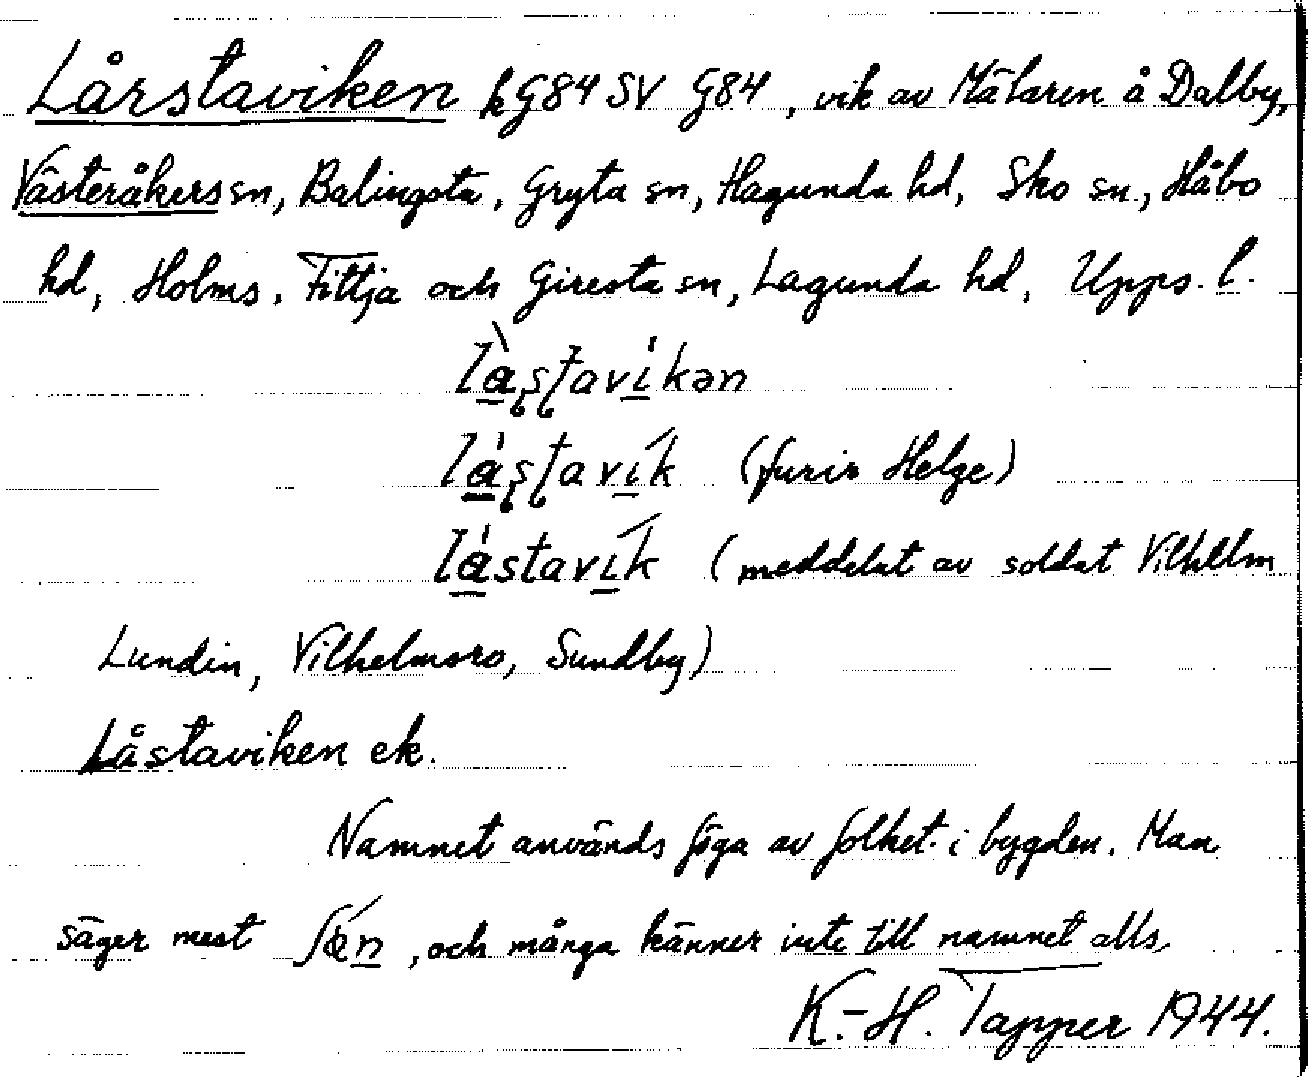 Lårstaviken hG84 SV G84, vik av Mälaren å Dalby,
Västeråkers sn, Balingsta, Gryta sn, Hagunda hd, Sko sn, Håbo
hd, Holms, Fittja och Giresta sn, Lagunda hd, Upps. l.
là̱ʂʈavi̱̍kən
lá̱ʂʈaví̱k (furir Helge)
lá̱staví̱k (meddelat av soldat Vilhelm
Lundin, Vilhelmsro, Sundby)
Låstaviken ek.
Namnet används föga av folket i bygden. Man
säger mest ʃœ́ṉ, och många känner inte till namnet alls.
K.-H. Tapper 1944.